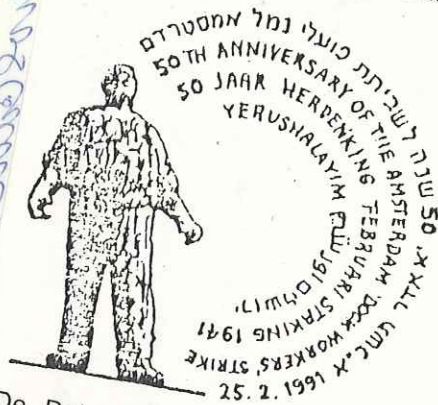 50 שנה לשביתת פועלי נמל אמסטרדם
50TH ANNIVERSARY OF THE AMSTERDAM DOCK WORKERS, STRIKE
50 JAAR HERDENKING FEBRUARI STAKING 1941
YERUSHALAYIM
ירושלים
25.2.1991
De